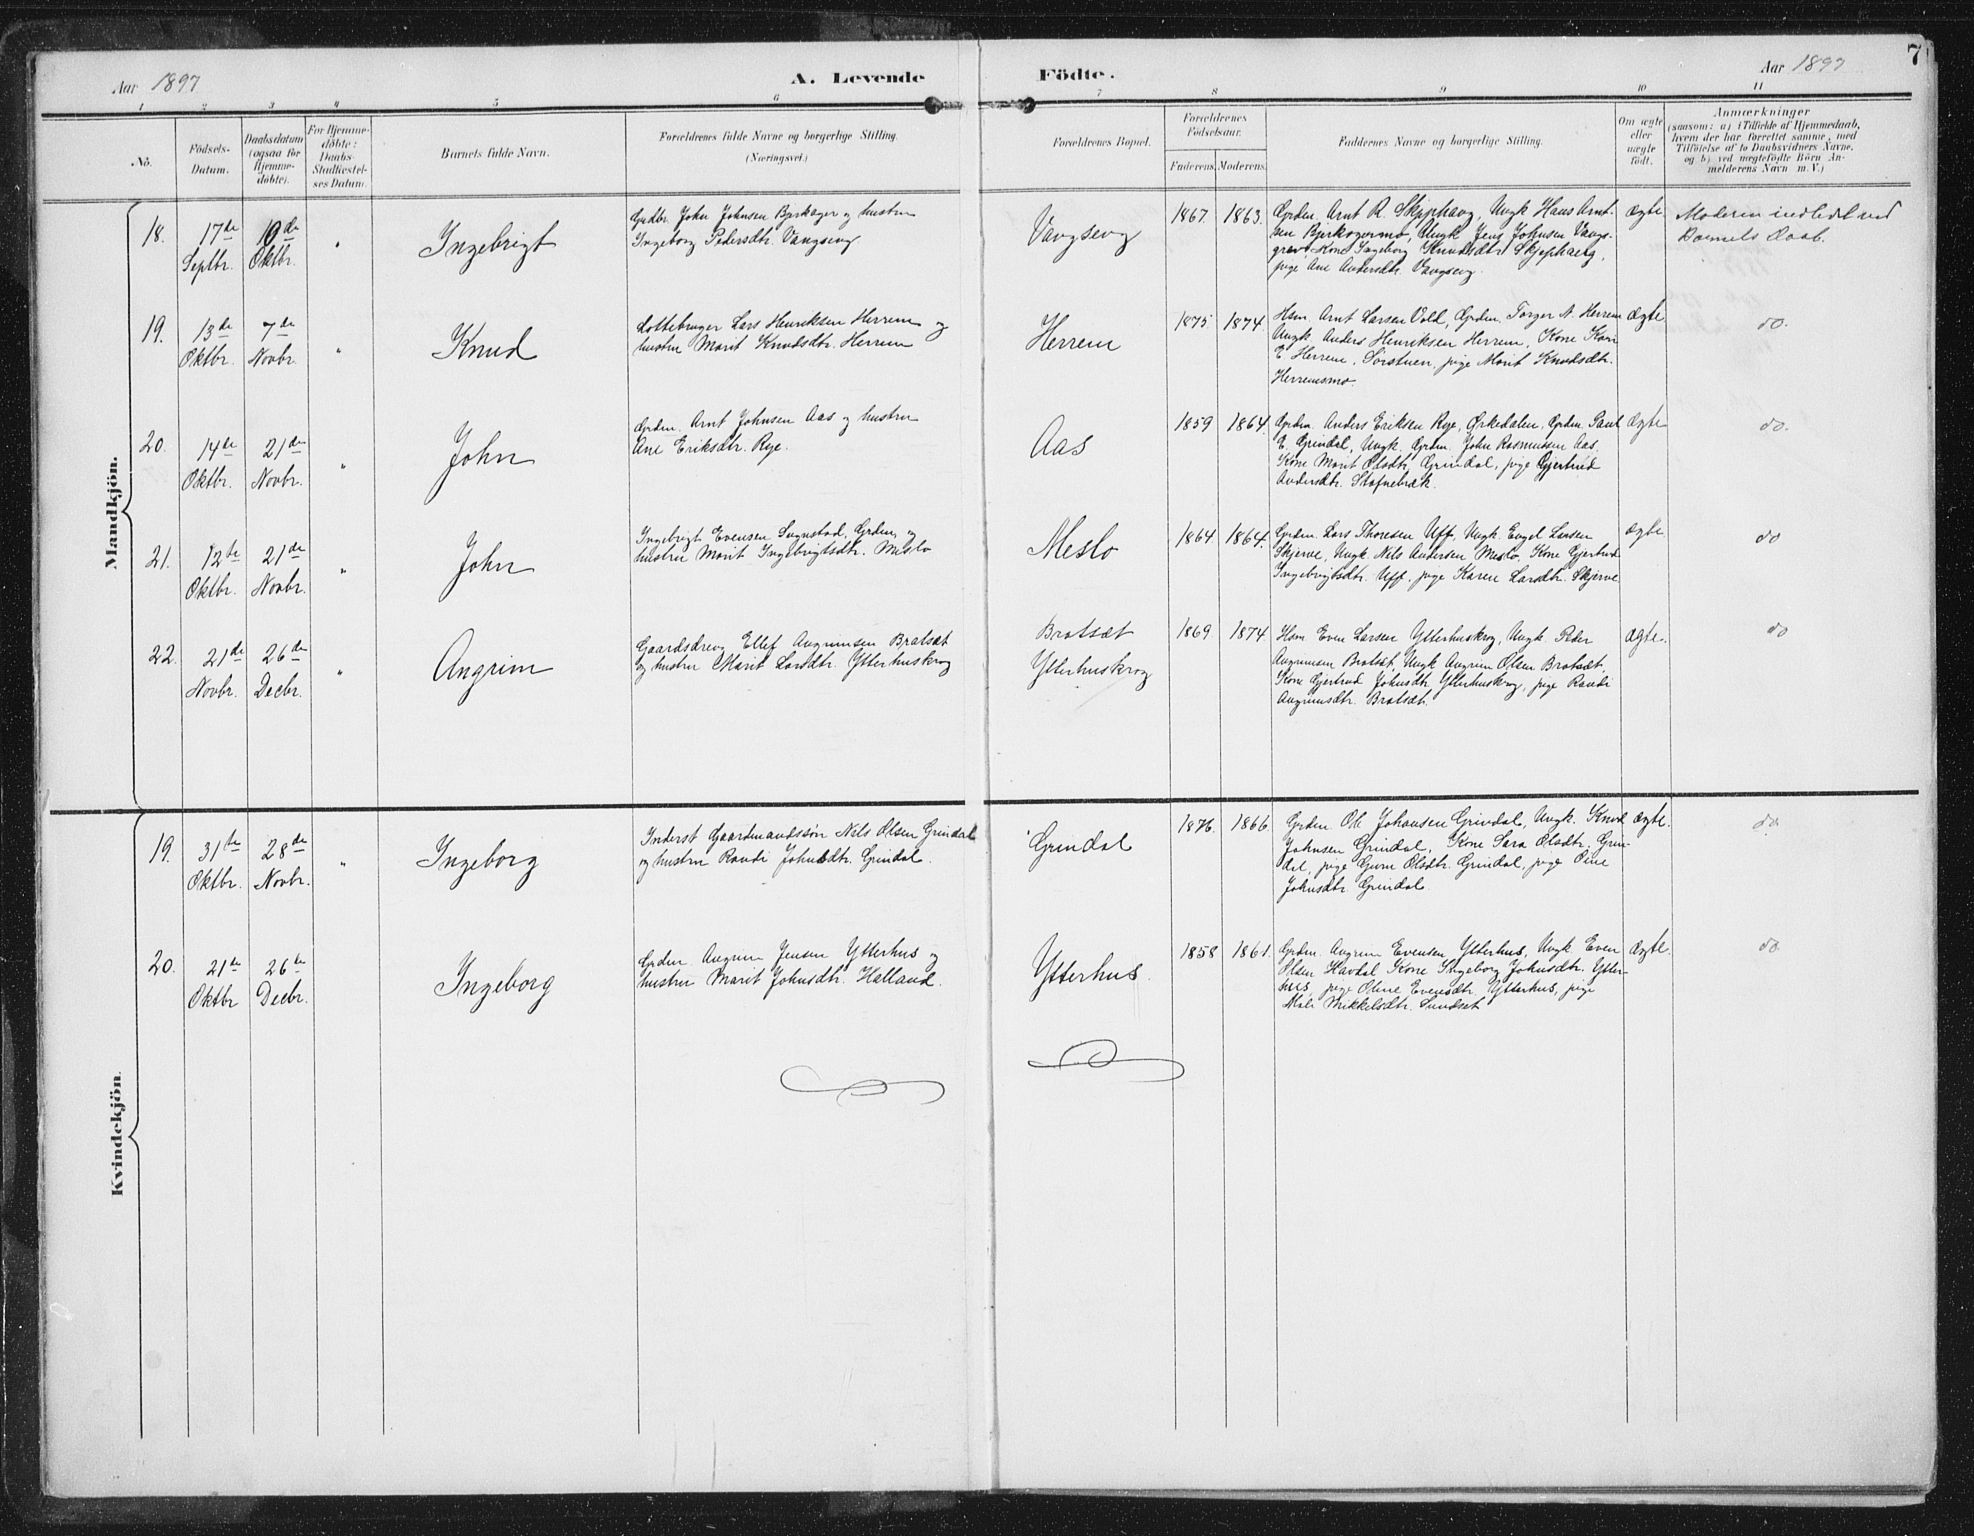 7
Aar 1897 A. Levende Födte. Aar 1897
1 2 3 4 5 6 7 8 9 10 11
No.
Födsels-
Datum.
Daabsdatum
(ogsaa for
Hjemme-
döbte).
For Hjemme-
döbte:
Daabs-
Stadfæstel-
ses Datum.
Barnets fulde Navn.
Forældrenes fulde Navne og borgerlige Stilling.
(Næringsvei.)
Forældrenes Bopæl.
Forældrenes
Födselsaar.
Faderens. Moderens.
Faddernes Navne og borgerlig Stilling.
Om ægte
eller
uægte
födt.
Anmærkninger
(saasom: a) i Tilfælde af Hjemmedaab,
hvem der har forrettet samme, med
Tilföielse af to Daabsvidners Navne.
og b) ved uægtefödte Börn An-
melderens Navn m. V.)
Mandkjön.
18. 17de Septbr. 10de Oktbr. " Ingebrigt
Grdbr. John Johnsen Bjerkager og hustru
Ingeborg Pedersdtr. Vangseng
Vangseng 1867 1863.
Grdm. Arnt R. Skjephaug, Ungk Hans Arnt-
sen Bjerkagermo, Ungk Jens Johnsen Vangs-
grev. Kone Ingeborg Knudsdtr. Skjephaug,
pige Ane Andersdtr. Vangseng.
Ægte
Moderen indledt ved
Barnets Daab.
19. 13de Oktbr. 7de Novbr. " Knud
Lottebruger Lars Henriksen Herrem og
hustru Marit Knudsdtr. Herrem
Herrem 1875 1874.
Hsm. Arnt Larsen Vold, Grdm. Torger N. Herrem
Ungk Anders Henriksen Herrem, Kone Kari
E. Herrem, Sörstuen, pige Marit Knudsdtr.
Herremsmo.
Ægte do.
20. 14de Oktbr. 21de Novbr. " John
Grdm. Arnt Johnsen Aas og hustru
Ane Eriksdtr. Rye.
Aas 1859 1864.
Grdm. Anders Eriksen Rye, Orkedalen, Grdm. Paul
E. Grindal, Ungk. Grdm. John Rasmusen Aas,
Kone Marit Olsdtr. Grindal, pige Gjertrud
Andersdtr. Stofnebræk.
Ægte do.
21. 12te Oktbr. 21de Novbr. " John
Ingebrigt Evensen Sugustad, Grdm. og
hustru Marit Ingebrigtsdtr. Meslo
Meslo 1864 1864.
Grdm. Lars Thoresen Uff, Ungk. Engel Larsen
Skjerve, Ungk. Nils Andersen Meslo, Kone Gjertrud
Ingebrigtsdtr. Uff. pige Karen Larsdtr. Skjerve
Ægte do
22. 21de Novbr. 26de Decbr. " Angrim
Gaardsdreng Ellef Angrimsen Bratsæt
og hustru Marit Larsdtr. Ytterhuskrog
Bratsæt
Ytterhuskrog
1869 1874
Hsm Even Larsen Ytterhuskrog, Ungk. Peder
Angrimsen Bratsæt, Ungk Angrim Olsen Bratsæt,
Kone Gjertrud Johnsdtr. Ytterhuskrog, pige Randi
Angrimsdtr. Bratsæt.
Ægte. do
Kvindekjön.
19. 31te Oktbr. 28de Novbr. " Ingeborg
Inderst Gaardmandssön Nils Olsen Grindal
og hustru Randi Johnsdtr. Grindal.
Grindal 1876. 1866.
Grdm. Ole Johansen Grindal, Ungk. Knud
Johnsen Grindal, Kone Sara Olsdtr. Grin-
dal, pige Guru Olsdtr. Grindal, pige Oline
Johnsdtr. Grindal.
Ægte. do.
20. 21de Oktbr 26de Decbr. Ingeborg
Grdm. Angrim Jensen Ytterhus og
hustru Marit Johnsdtr. Halland.
Ytterhus. 1858 1861.
Grdm. Angrim Evensen Ytterhus, Ungk Even
Olsen Havdal, Kone Ingeborg Johnsdtr. Ytter-
hus, pige Oline Evensdtr. Ytterhus, pige
Mali Mikkelsdtr. Sundset
Ægte. do